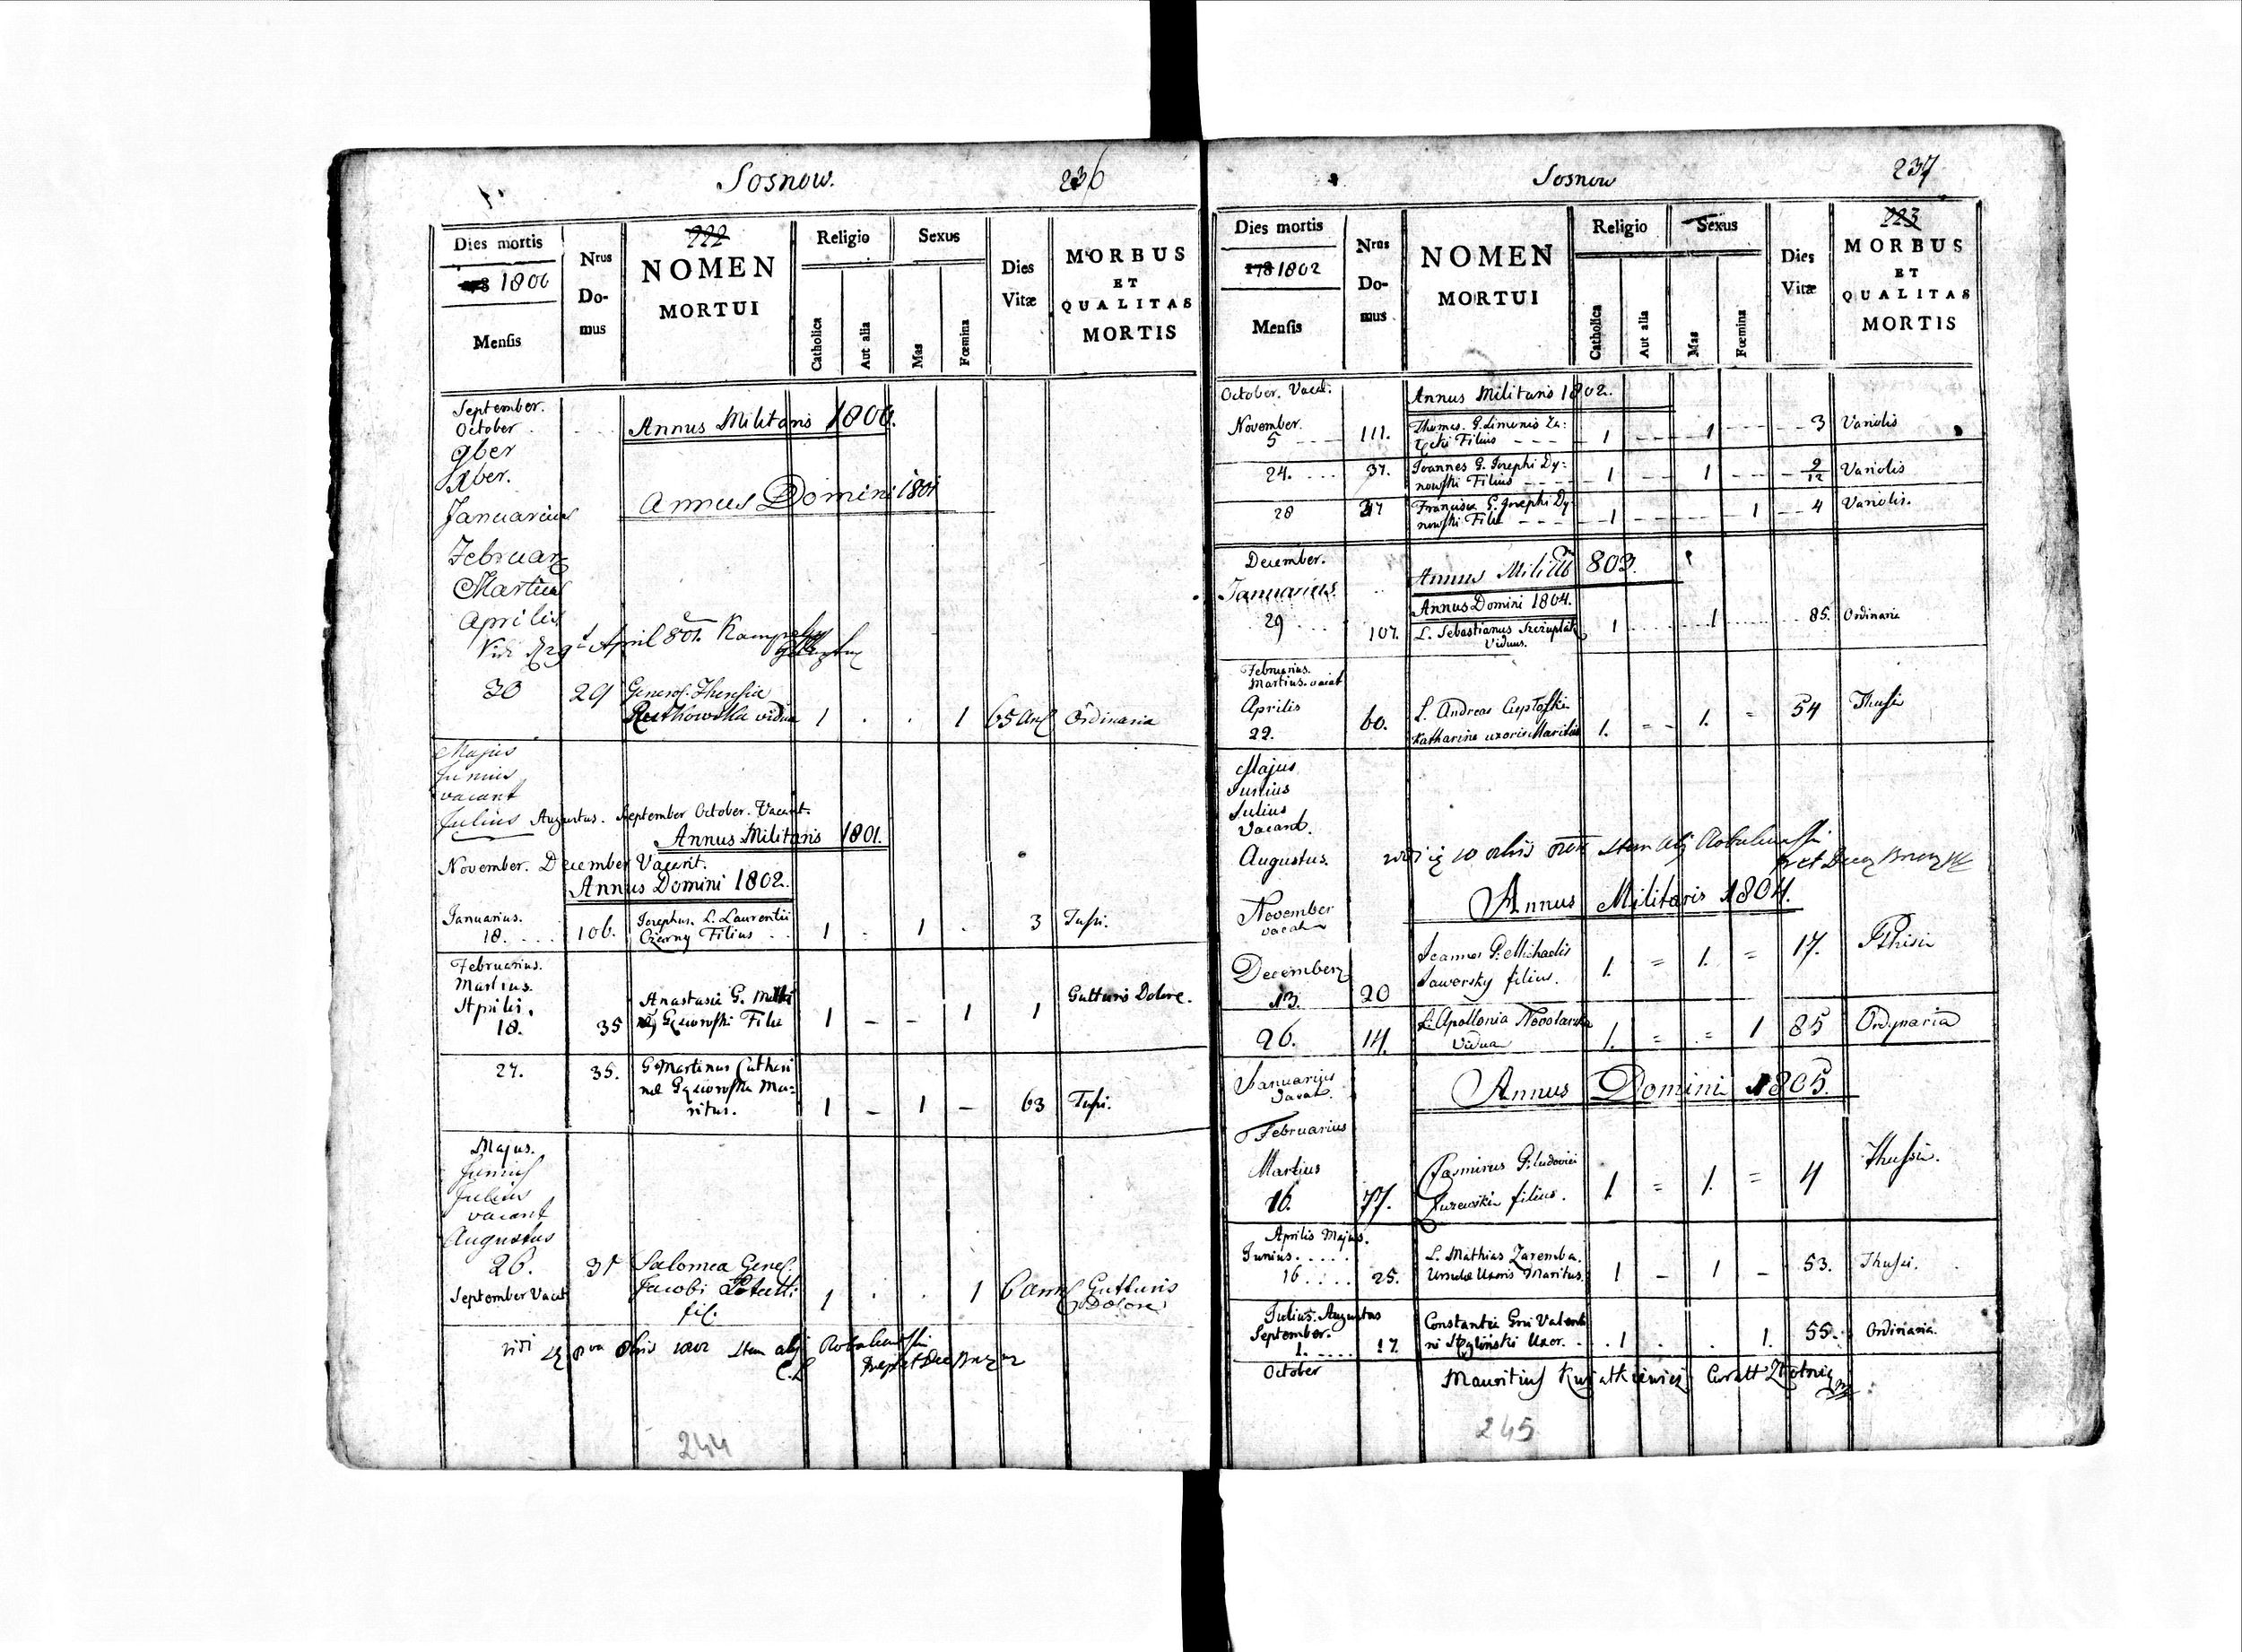 Sosnow.
236
Dies mortis
1800
Mensis
Nrus
Do-
mus
222
NOMEN
MORTUI
Religio
Catholica
Aut alia
Sexus
Mas
Fœmina
Dies
Vitæ
MORBUS
ET
QUALITAS
MORTIS
September.
October
Annus Militaris 1800.
9ber
Xber.
Januarius
Annus Domini 1801
Februar
Martius
Aprilis
Vidi 29 April 801.
30 29 Generos. Theresia
Rutkowska vidua 1 . . 1 65 Ordinaria
Majus
Junius
vacant
Julius Augustus. September October. Vacant.
Annus Militaris 1801.
November. December Vacant.
Annus Domini 1802.
Januarius.
18. 106. Josephus. L. Laurentii
Czerny Filius 1 . 1 . 3 Tussi.
Februarius.
Martius.
Aprilis.
18. 35 Anastasia G.
Filia 1 - - 1 1 Gutturis Dolore.
27. 35. G. Martinus Cathari
nae Ma=
ritus. 1 - 1 - 63 Tussi.
Majus.
Junius
Julius
vacant
Augustus
26. Salomea Generos.
Jacobi
fil. 1 . . 1 6 Gutturis
Dolore
September Vacat
vidi
244
Sosnow
237
Dies mortis
178 1802
Mensis
Nrus
Do-
mus
NOMEN
MORTUI
Religio
Catholica
Aut alia
Sexus
Mas
Fœmina
Dies
Vitæ
223
MORBUS
ET
QUALITAS
MORTIS
October. Vacat.
Annus Militaris 1802.
November.
5 111. Thomas. G. Simonis Za:
Filius 1 1 3 Variolis
24. 37. Joannes G. Josephi Dy:
nowski Filius 1 1 9/12 Variolis
28 37 Francisca G. Josephi Dy
nowski Filia 1 1 4 Variolis.
December.
Annus Milit 803.
Januarius.
Annus Domini 1804.
29 107. L. Sebastianus
Viduus. 1 1 85. Ordinaria
Februarius.
Martius. vacat
Aprilis
22. 60. L. Andreas
Katharinæ uxoris Maritus 1. = 1. = 54 Thussi
Majus
Junius
Julius
Vacant.
Augustus.
Annus Militaris 1804.
November
vacat
December
13. 20 Joannes G. Michaelis
Jaworsky filius. 1. = 1. = 17. Pthisi
26. 14. L. Apollonia
Vidua 1. = = 1 85 Ordynaria
Januarius
Vacat.
Annus Domini 1805.
Februarius
Martius
16. 77. Casimirus G. Ludovici
filius. 1. = 1. = 4 Thussi.
Aprilis Majus.
Junius.
16 25. L. Mathias Zaremba.
Ursulæ Uxoris Maritus. 1 - 1 - 53. Thussi.
Julius. Augustus
September.
1. 17. Constantia Gni Valenti
ni Uxor. 1 . . 1. 55. Ordinaria.
October
Mauritius
245